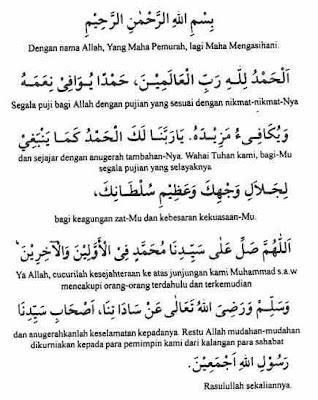 بِسْمِ اللهِ الرَّحْمٰنِ الرَّحِيْمِ
Dengan nama Allah, Yang Maha Pemurah, lagi Maha Mengasihani.
اَلْحَمْدُ لِلّٰهِ رَبِّ الْعَالَمِيْنَ، حَمْدًا يُوَافِيْ نِعَمَهُ
Segala puji bagi Allah dengan pujian yang sesuai dengan nikmat-nikmat-Nya
وَيُكَافِىءُ مَزِيْدَهُ. يَارَبَّنَا لَكَ الْحَمْدُ كَمَا يَنْبَغِيْ
dan sejajar dengan anugerah tambahan-Nya. Wahai Tuhan kami, bagi-Mu
segala pujian yang selayaknya
لِجَلَالِ وَجْهِكَ وَعَظِيْمِ سُلْطَانِكَ،
bagi keagungan zat-Mu dan kebesaran kekuasaan-Mu.
اَللّٰهُمَّ صَلِّ عَلٰى سَيِّدِنَا مُحَمَّدٍ فِى الْأَوَّلِيْنَ وَالْآخِرِيْنَ،
Ya Allah, cucurilah kesejahteraan ke atas junjungan kami Muhammad s.a.w
mencakupi orang-orang terdahulu dan terkemudian
وَسَلِّمْ وَرَضِىَ اللهُ تَعَالٰى عَنْ سَادَاتِنَا، اَصْحَابِ سَيِّدِنَا
dan anugerahkanlah keselamatan kepadanya. Restu Allah mudahan-mudahan
dikurniakan kepada para pemimpin kami dari kalangan para sahabat
رَسُوْلِ اللهِ اَجْمَعِيْنَ.
Rasulullah sekaliannya.